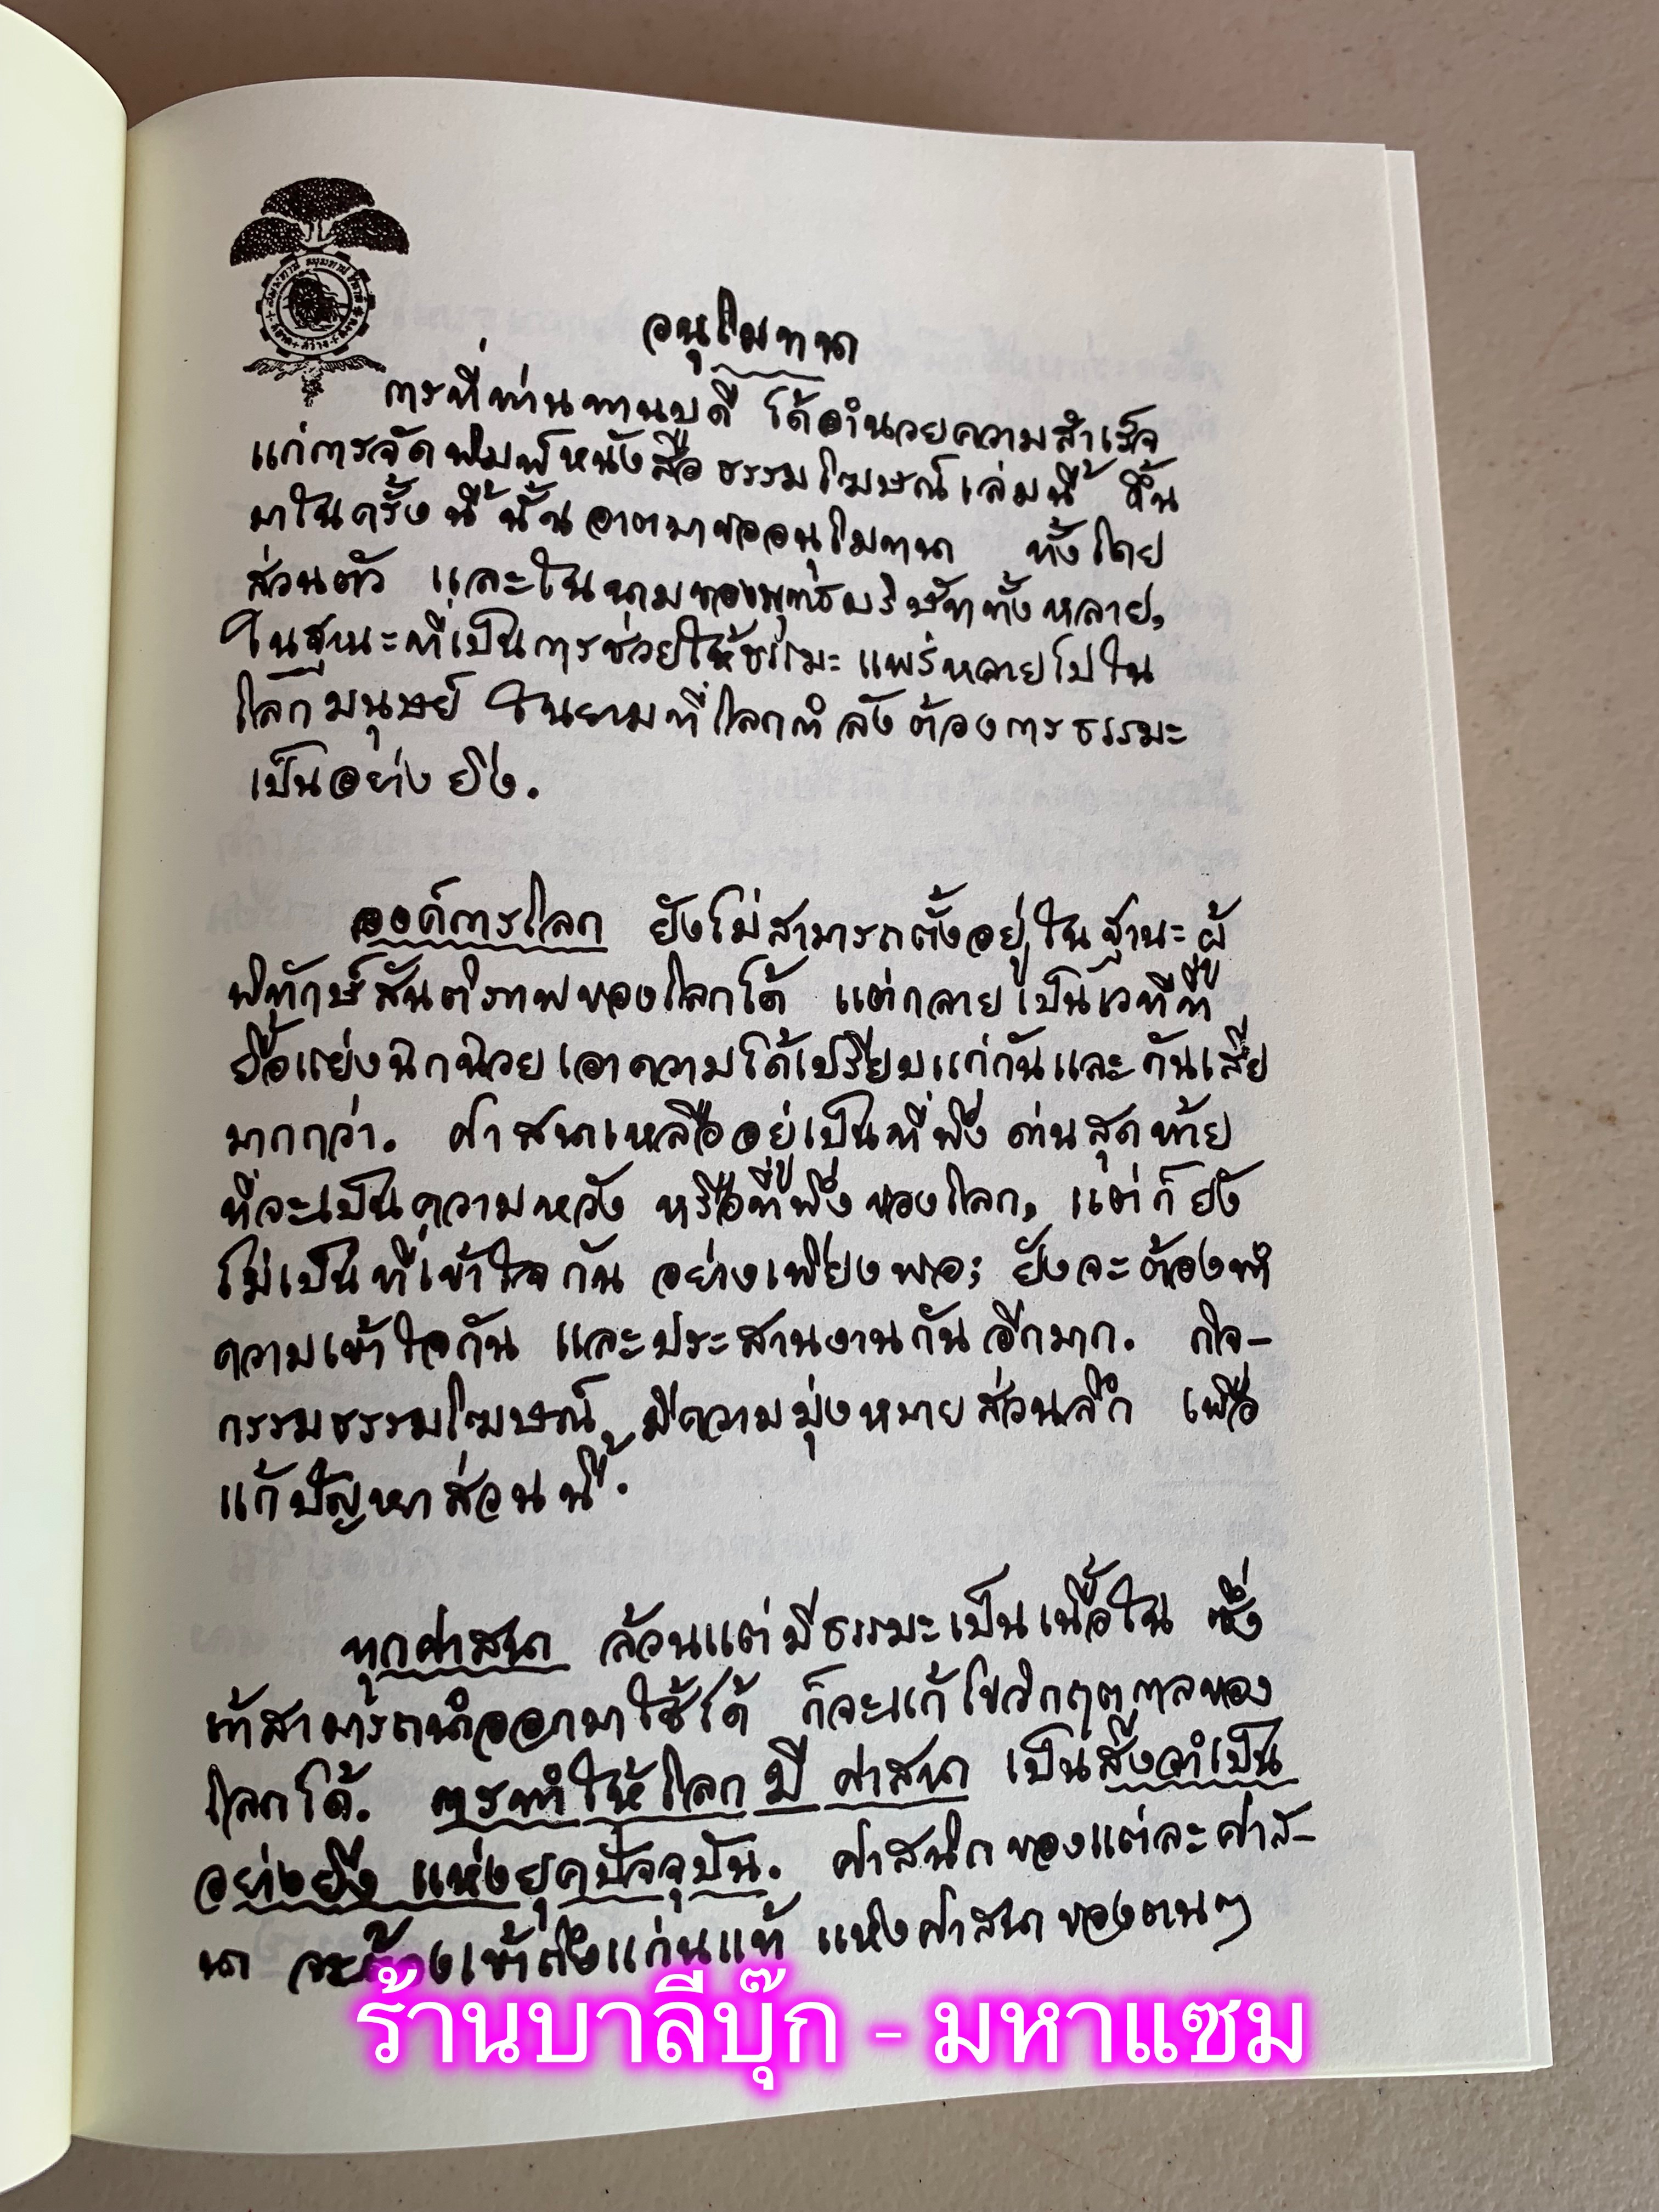 อนุโมทนา
การที่ท่านทานบดี ได้อำนวยความสำเร็จ
แก่การจัดพิมพ์หนังสือ ธรรมโฆษณ์เล่มนี้ ขึ้น
มาในครั้งนี้ นั้น อาตมาขออนุโมทนา ทั้งโดย
ส่วนตัว และในนามของพุทธบริษัททั้งหลาย,
ในฐานะที่เป็นการช่วยให้ธรรมะ แพร่หลายไปใน
โลกมนุษย์ ในยามที่โลกกำลังต้องการธรรมะ
เป็นอย่างยิ่ง.
องค์การโลก ยังไม่สามารถตั้งอยู่ในฐานะผู้
พิทักษ์สันติภาพของโลกได้ แต่กลายเป็นเวทีที่
ยื้อแย่งฉกฉวยเอาความได้เปรียบแก่กันและกันเสีย
มากกว่า. ศาสนาเหลืออยู่เป็นที่พึ่ง ด่านสุดท้าย
ที่จะเป็นความหวัง หรือที่พึ่งของโลก, แต่ก็ยัง
ไม่เป็นที่เข้าใจกัน อย่างเพียงพอ; ยังจะต้องทำ
ความเข้าใจกัน และประสานงานกันอีกมาก. กิจ-
กรรมธรรมโฆษณ์ มีความมุ่งหมายส่วนลึก เพื่อ
แก้ปัญหาส่วนนี้.
ทุกศาสนา ล้วนแต่มีธรรมะเป็นเนื้อใน ซึ่ง
ถ้าสามารถนำออกมาใช้ได้ ก็จะแก้ไขวิกฤตกาลของ
โลกได้. การทำให้โลกมีศาสนา เป็นสิ่งจำเป็น
อย่างยิ่ง แห่งยุคปัจจุบัน. ศาสนิกของแต่ละศาส-
นา จะต้องเข้าถึงแก่นแท้ แห่งศาสนาของตนๆ
ร้านบาลีบุ๊ก - มหาแซม